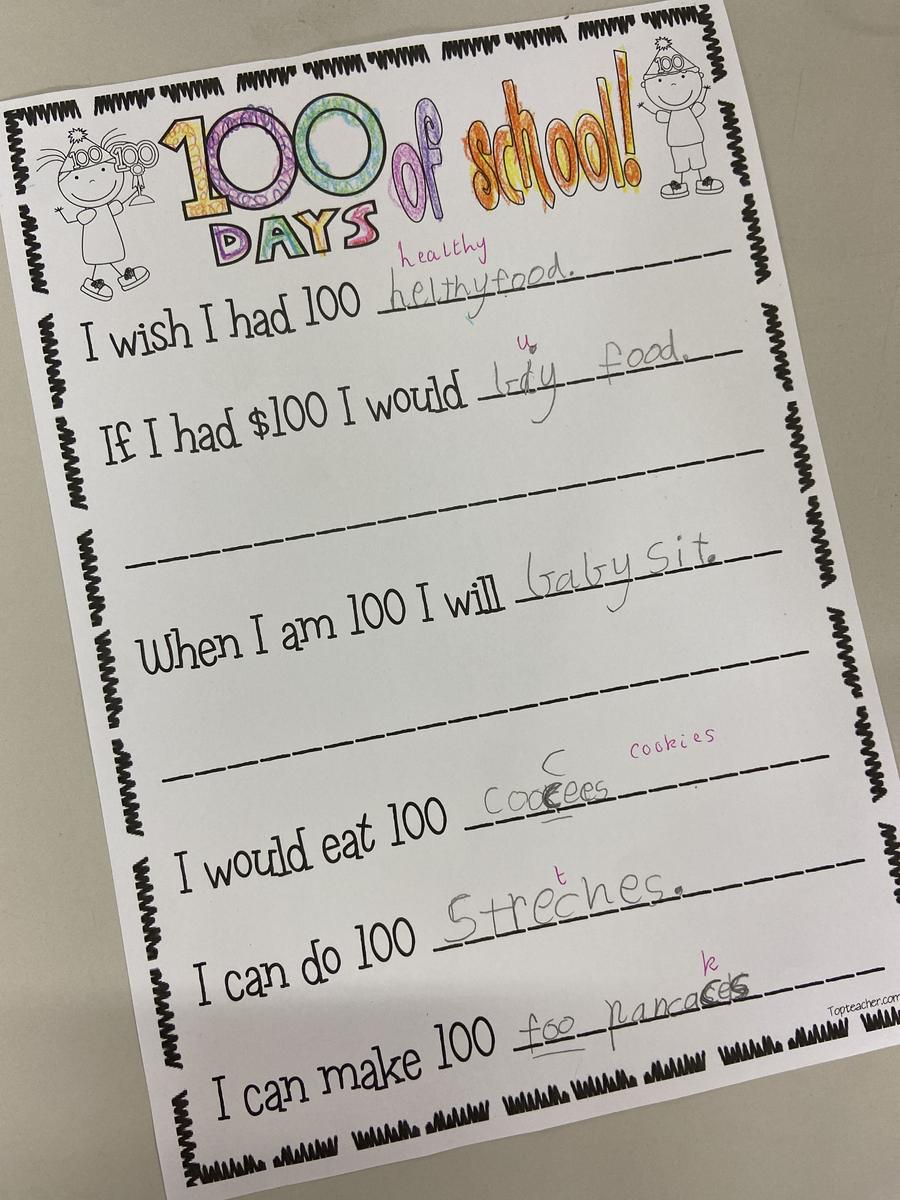 100 DAYS of school!
100
100
100
healthy
I wish I had 100 helthy food.
u
If I had $100 I would bdy food.
When I am 100 I will baby sit.
c cookies
I would eat 100 coocees
t
I can do 100 streches.
k
I can make 100 foo pancaces
Topteacher.com